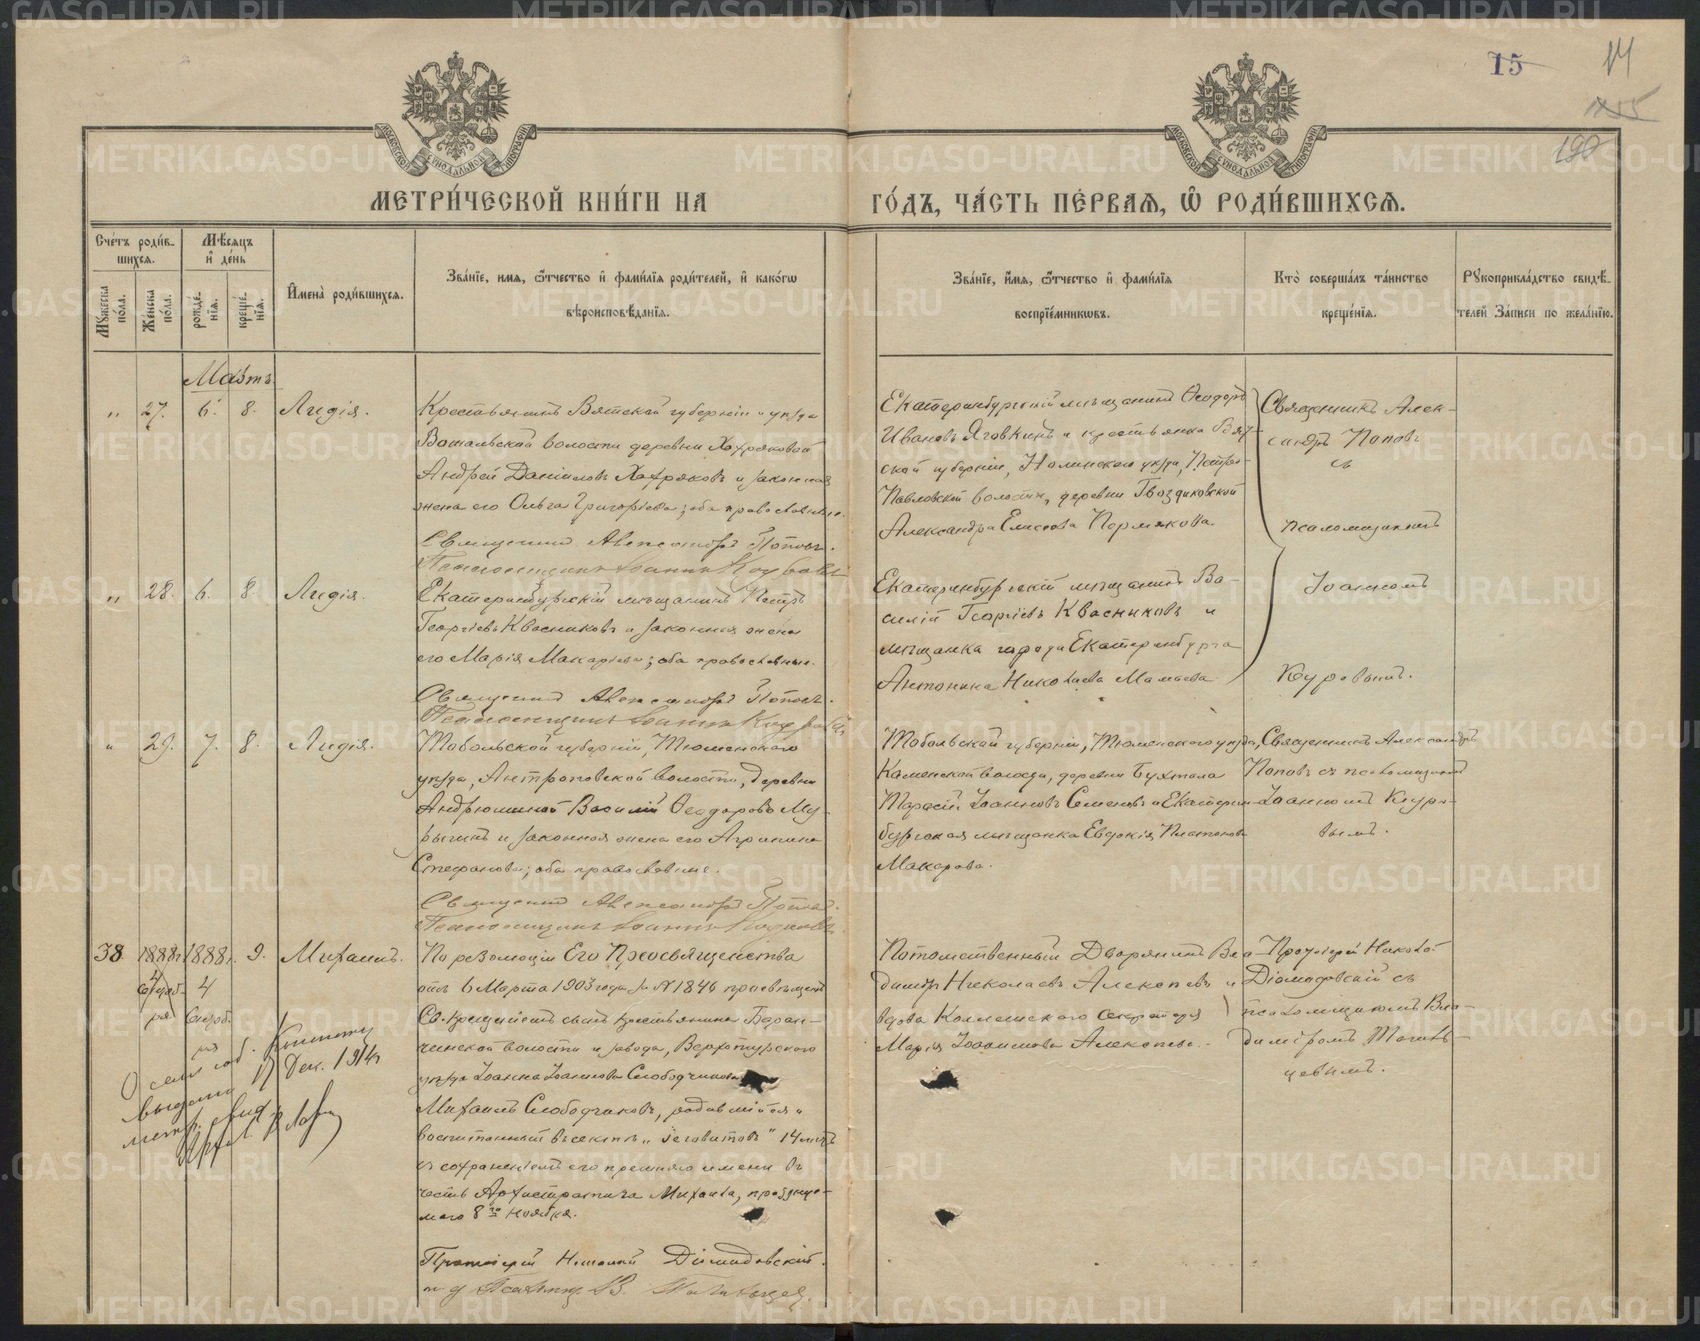 15
14
190
МЕТРИ́ЧЕСКОЙ КНИ́ГИ НА ГО́ДЪ, ЧА́СТЬ ПЕ́РВАѦ, Ѡ РОДИ́ВШИХСѦ.
Сче́тъ роди́в-
шихся.
Мѣ́сяцъ
и҆ де́нь
Мꙋ́жеска по́ла.
Же́нска по́ла.
рожде́-
нїя.
креще́-
нїя.
И҆мена̀ роди́вшихся.
Зва́нїе, имя, ѻ҆́тчество и҆ фами́лїя роди́телей, и҆ како́гѡ
вѣроисповѣ́данїя.
Зва́нїе, и҆́мя, ѻ҆́тчество и҆ фами́лїя
воспрїе́мникѡвъ.
Кто̀ соверша́лъ та́инство
креще́нїя.
Рꙋкоприкла́дство свидѣ́-
телей за́писи по жела́нїю.
Мартъ.
„ 27. 6. 8. Лидія.
Крестьянинъ Вятской губерніи и уѣзда
волости деревни Хохряковой
Андрей Даніиловъ Хохряковъ и законная
жена его Ольга Григоріева; оба православные.
Священникъ Александръ Поповъ.
Псаломщикъ Іоаннъ
Екатеринбургскій мѣщанинъ Ѳеодоръ
Ивановъ Яговкинъ и крестьянка Вят-
ской губерніи, Нолинскаго уѣзда, Петро-
Павловской волости, деревни Гвоздиковской
Александра Елисѣева Пермякова.
Священникъ Алек-
сандръ Поповъ
съ
псаломщикомъ
„ 28. 6. 8. Лидія.
Екатеринбургскій мѣщанинъ Петръ
Георгіевъ Квасниковъ и законная жена
его Марія Макаріева; оба православные.
Священникъ Александръ Поповъ.
Псаломщикъ Іоаннъ
Екатеринбургскій мѣщанинъ Ва-
силій Георгіевъ Квасниковъ и
мѣщанка города Екатеринбурга
Антонина Николаева Мамаева
Іоанномъ
„ 29. 7. 8. Лидія.
Тобольской губерніи, Тюменскаго
уѣзда, Антроповской волости, деревни
Андрюшиной Василій Ѳеодоровъ Му-
рыгинъ и законная жена его Агрипина
Стефанова; оба православные.
Священникъ Александръ Поповъ.
Псаломщикъ Іоаннъ
Тобольской губерніи, Тюменскаго уѣзда,
Каменской волости, деревни
Тарасій Іоанновъ Семеновъ и Екатерин-
бургская мѣщанка Евдокія Платонова
Макарова.
Священникъ Александръ
Поповъ съ псаломщикомъ
Іоанномъ
38 1888 1888 9. Михаилъ.
4 4
По резолюціи Его Преосвященства
отъ 6 Марта 1903 года за № 1846 просвѣщенъ
Св. Крещеніемъ сынъ крестьянина Баран-
чинской волости и завода, Верхотурскаго
уѣзда Іоанна Іоаннова Слободчикова
Михаилъ Слободчиковъ, родившійся и
воспитанный въ сектѣ „Іеговистовъ" 14 лѣтъ
съ сохраненіемъ его прежняго имени въ
честь Архистратига Михаила, празднуе-
маго 8го Ноября.
Протоіерей Николай Діомидовскій.
и. д. Псаломщ. В.
Потомственный Дворянинъ Вла-
диміръ Николаевъ Алексѣевъ и
вдова Коллежскаго Секретаря
Марія Іоакимова Алексѣева.
Протоіерей Николай
Діомидовскій съ
псаломщикомъ Вла-
диміромъ
О семъ
выдано 17 Дек. 1914
метр.